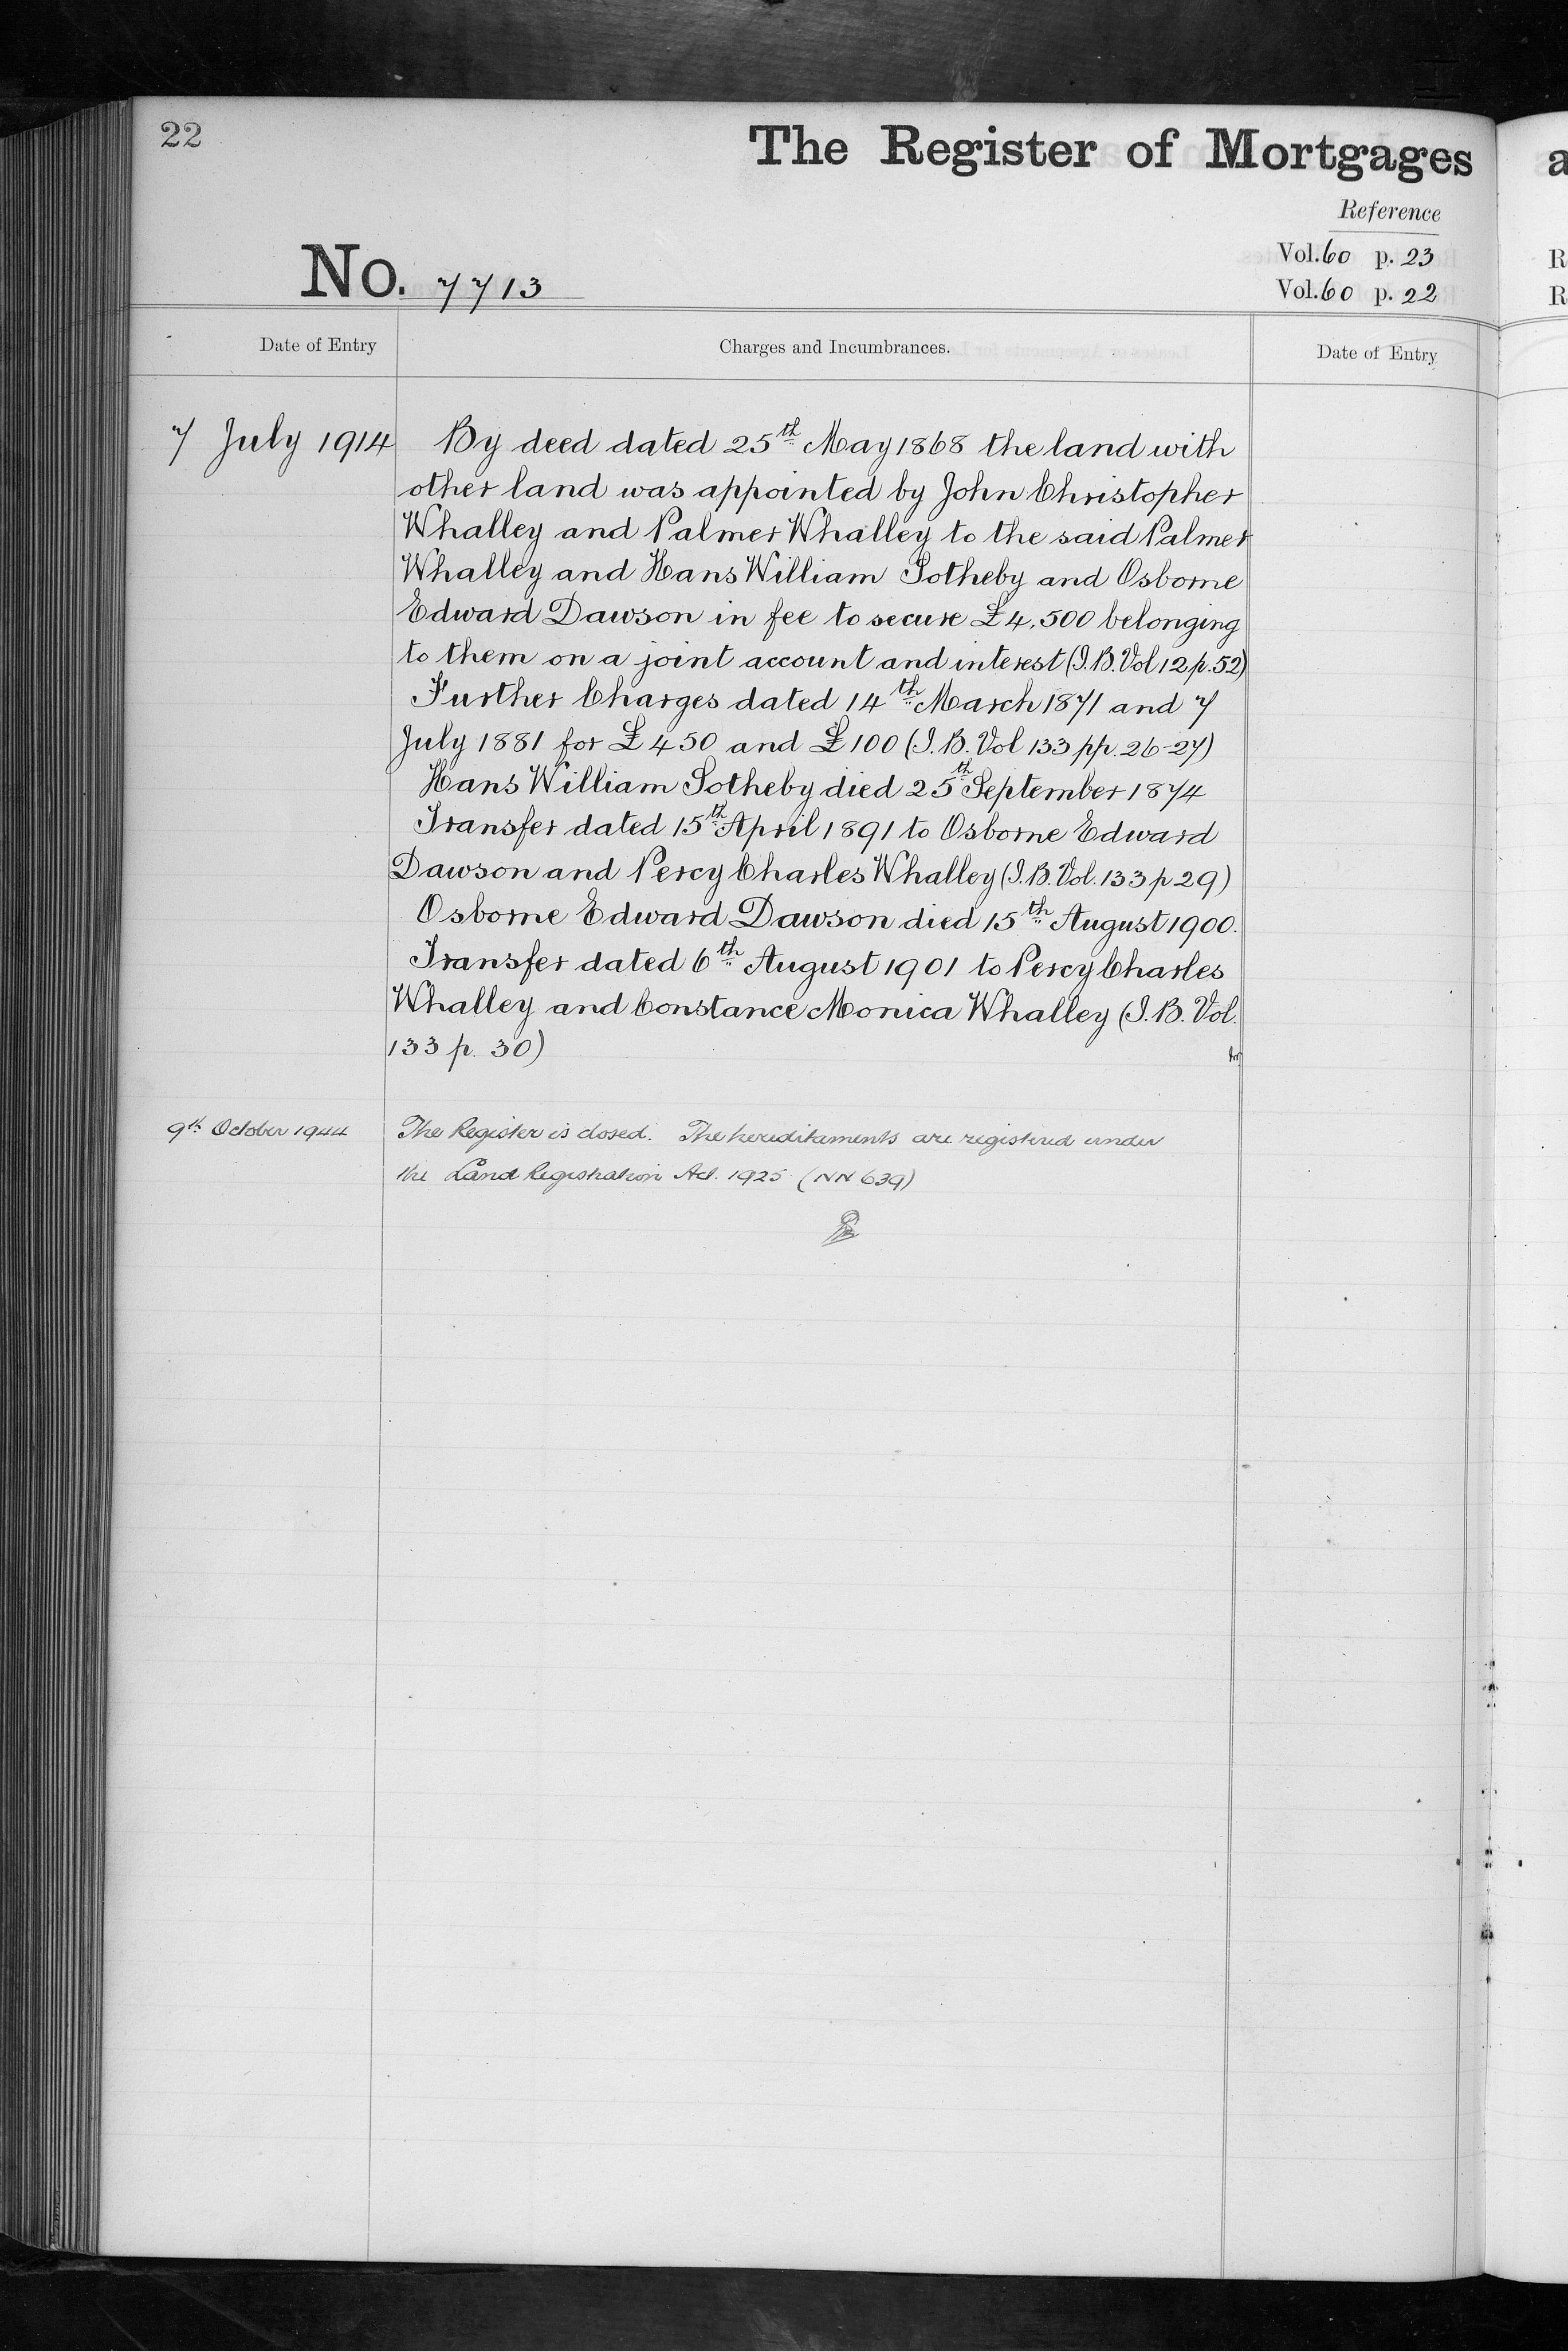 22
The Register of Mortgages
Reference
Vol. 60 p. 23
No. 7713
Vol. 60 p. 22
Date of Entry
Charges and Incumbrances.
Date of Entry
7 July 1914
By deed dated 25th May 1868 the land with
other land was appointed by John Christopher
Whalley and Palmer Whalley to the said Palmer
Whalley and Hans William Sotheby and Osborne
Edward Dawson in fee to secure £4,500 belonging
to them on a joint account and interest (I.B. Vol 12 p. 52)
Further Charges dated 14th March 1871 and 7
July 1881 for £450 and £100 (I.B. Vol 133 pp. 26-27)
Hans William Sotheby died 25th September 1874
Transfer dated 15th April 1891 to Osborne Edward
Dawson and Percy Charles Whalley (I.B. Vol. 133 p 29)
Osborne Edward Dawson died 15th August 1900.
Transfer dated 6th August 1901 to Percy Charles
Whalley and Constance Monica Whalley (I.B. Vol.
133 p. 30)
9th October 1944
The Register is closed. The hereditaments are registered under
the Land Registration Act. 1925 (NN 639)
a
R
R